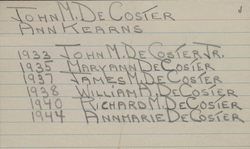 JOHN M. DECOSTER
ANN KEARNS
1933 JOHN M. DECOSTER JR.
1935 MARYANN DECOSTER
1937 JAMES M. DECOSTER
1938 WILLIAM A. DECOSTER
1940 RICHARD M. DECOSTER
1944 ANNMARIE DECOSTER